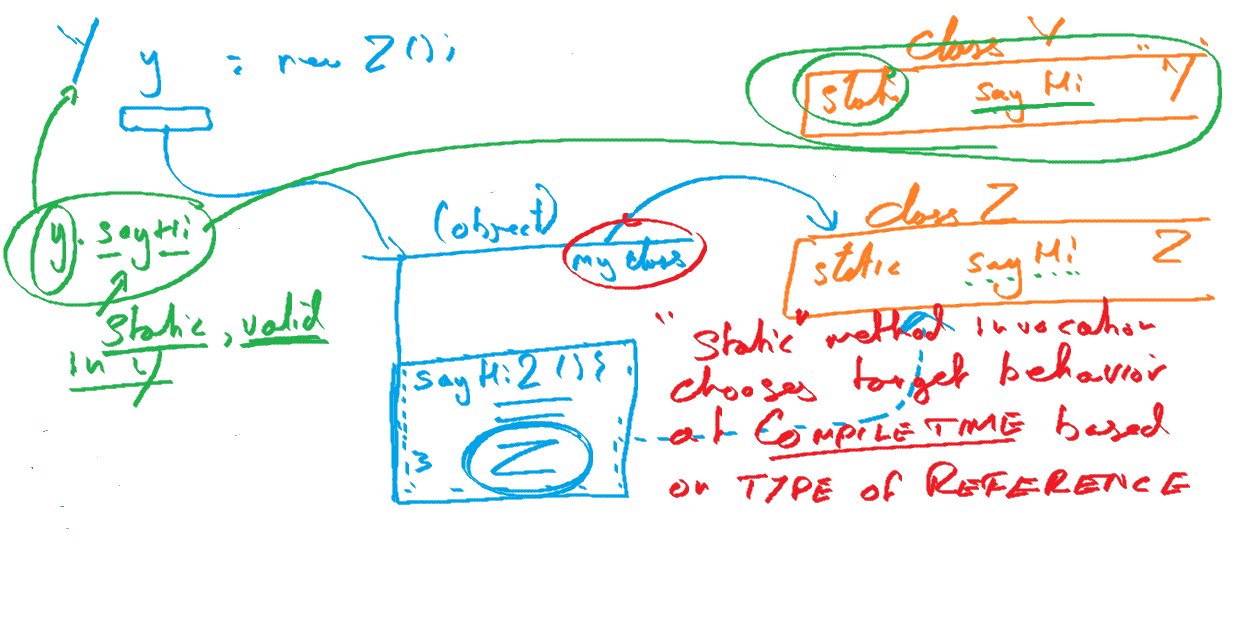 Y y = new Z();
class Y
static sayHi "Y"
y.sayHi
static, valid
in Y
(object)
my class
class Z
static sayHi Z
sayHi2(){
Z
}
"static" method invocation
chooses target behavior
at COMPILE TIME based
on TYPE of REFERENCE